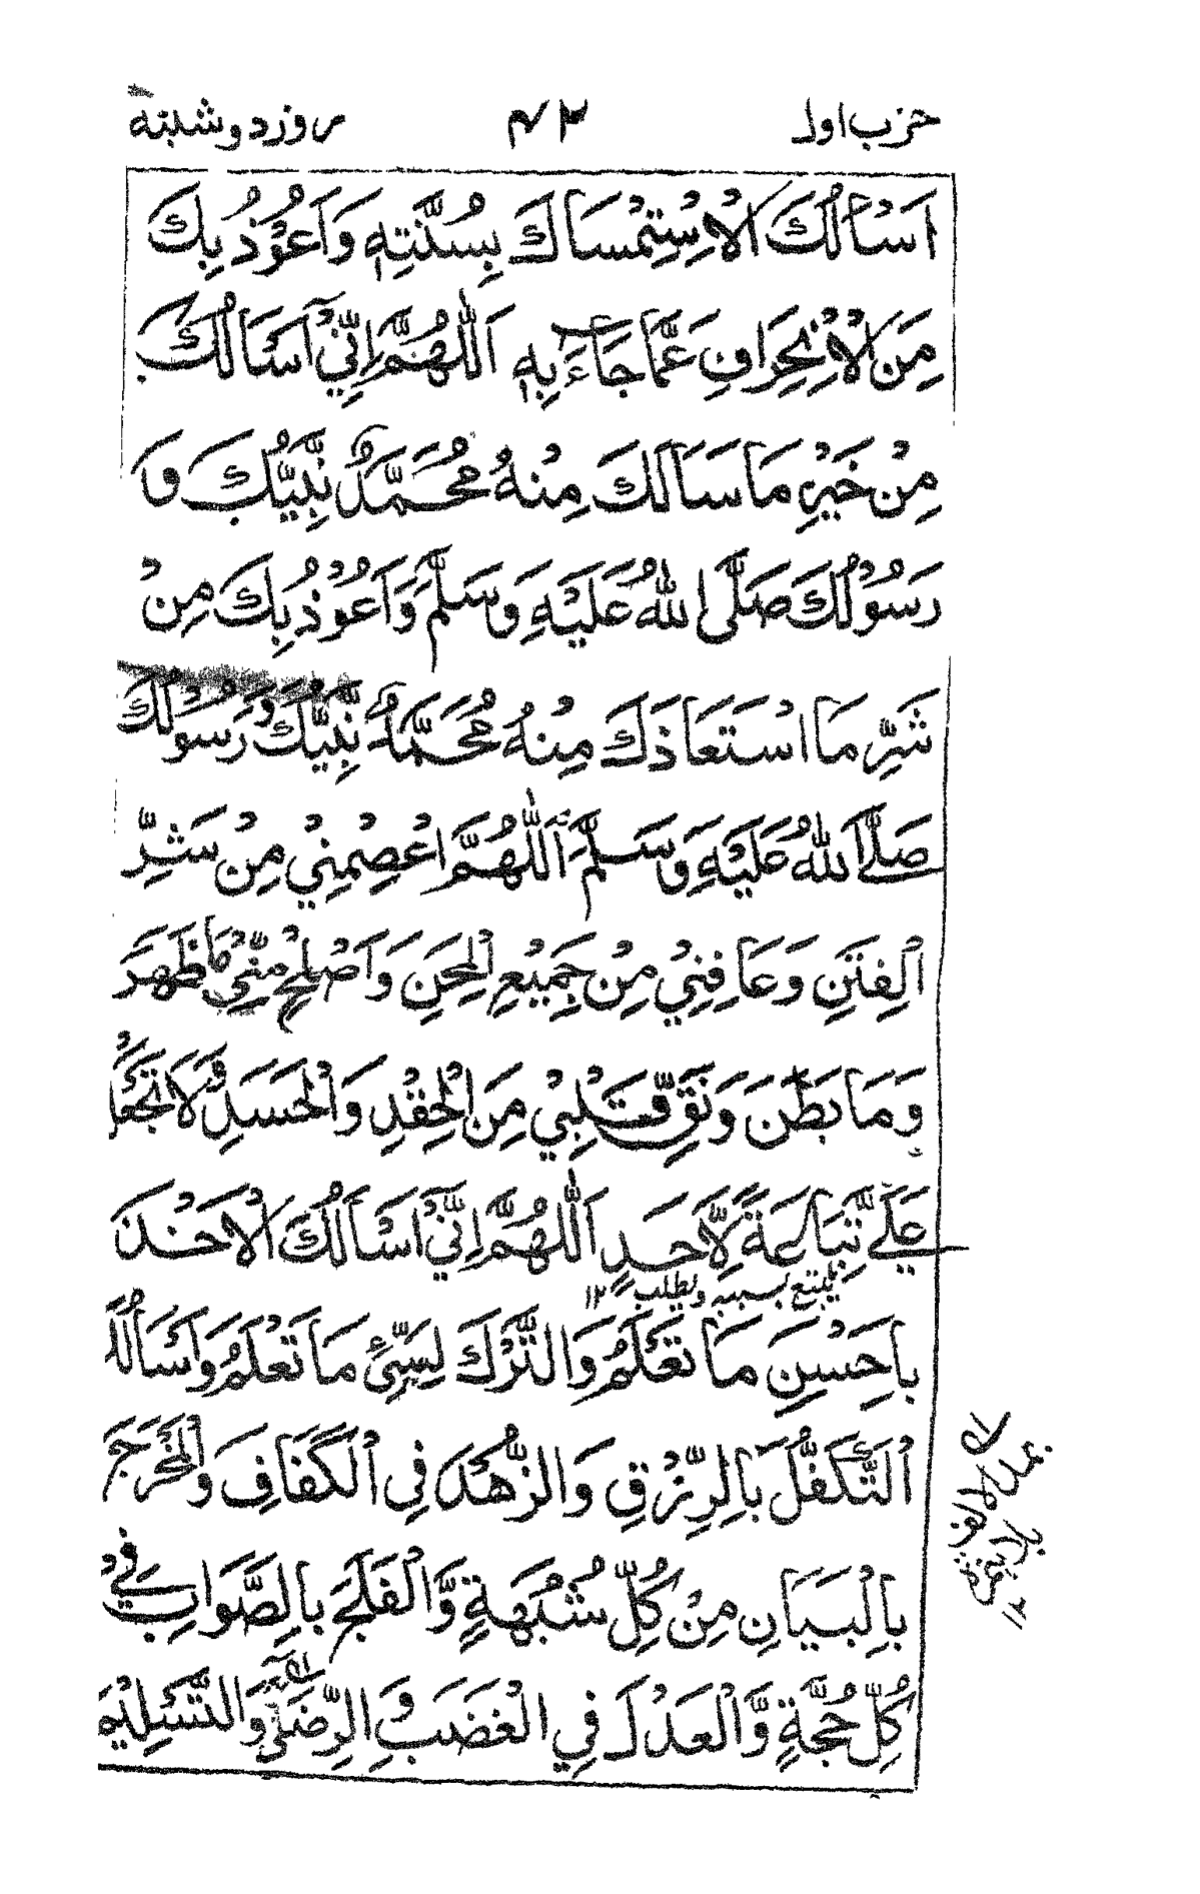 حزب اول ۴۲ روز دوشنبه
اَسْأَلُكَ الْاِسْتِمْسَاكَ بِسُنَّتِهٖ وَاَعُوْذُ بِكَ
مِنَ الْاِنْحِرَافِ عَمَّا جَآءَ بِهٖ اَللّٰهُمَّ اِنِّيْٓ اَسْأَلُكَ
مِنْ خَيْرِ مَا سَأَلَكَ مِنْهُ مُحَمَّدٌ نَّبِيُّكَ وَ
رَسُوْلُكَ صَلَّى اللهُ عَلَيْهِ وَسَلَّمَ وَاَعُوْذُ بِكَ مِنْ
شَرِّ مَا اسْتَعَاذَكَ مِنْهُ مُحَمَّدٌ نَّبِيُّكَ وَرَسُوْلُكَ
صَلَّى اللهُ عَلَيْهِ وَسَلَّمَ اَللّٰهُمَّ اعْصِمْنِيْ مِنْ شَرِّ
الْفِتَنِ وَعَافِنِيْ مِنْ جَمِيْعِ الْمِحَنِ وَاَصْلِحْ مِنِّيْ مَا ظَهَرَ
وَمَا بَطَنَ وَنَقِّ قَلْبِيْ مِنَ الْحِقْدِ وَالْحَسَدِ وَلَا تَجْعَلْ
عَلَيَّ تِبَاعَةً لِّاَحَدٍ اَللّٰهُمَّ اِنِّيْٓ اَسْأَلُكَ الْاَخْذَ
يتبع بسببه ويطلب ۱۲
بِاَحْسَنِ مَا تَعْلَمُ وَالتَّرْكَ لِسَيِّئِ مَا تَعْلَمُ وَاَسْأَلُكَ
التَّكَفُّلَ بِالرِّزْقِ وَالزُّهْدَ فِي الْكَفَافِ وَالْمَخْرَجَ
بِالْبَيَانِ مِنْ كُلِّ شُبْهَةٍ وَّالْفَلَجَ بِالصَّوَابِ فِيْ
كُلِّ حُجَّةٍ وَّالْعَدْلَ فِي الْغَضَبِ وَالرِّضَى وَالتَّسْلِيْمَ